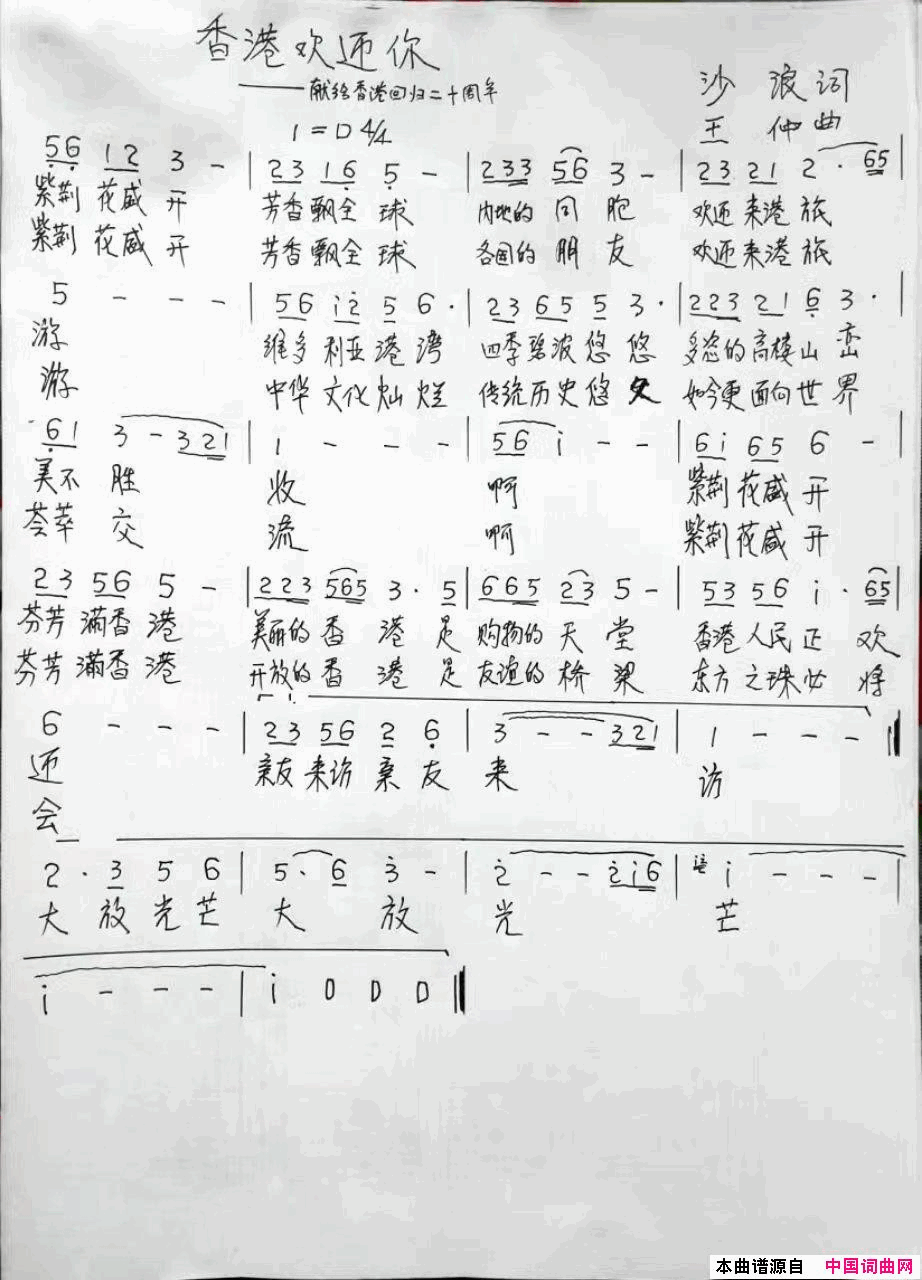 香港欢迎你
——献给香港回归二十周年
1=D 4/4
沙浪词
王仲曲
56 12 3 - | 23 16 5 - | 233 56 3 - | 23 21 2 · 65
紫荆 花盛 开 芳香飘全 球 内地的 同 胞 欢迎 来港 旅
紫荆 花盛 开 芳香飘全 球 各国的 朋 友 欢迎 来港 旅
5 - - - | 56 i2 5 6 · | 23 65 5 3 · | 223 21 6 3 ·
游 维多 利亚 港 湾 四季碧波悠 悠 多姿的高楼山 峦
游 中华 文化 灿 烂 传统历史悠 久 如今更面向世 界
61 3 - 321 | 1 - - - | 56 i - - | 6i 65 6 -
美不 胜 收 啊 紫荆花盛 开
荟萃 交 流 啊 紫荆花盛 开
23 56 5 - | 223 565 3 · 5 | 665 23 5 - | 53 56 i · 65
芬芳 满香 港 美丽的 香 港 是 购物的 天 堂 香港 人民 正 欢
芬芳 满香 港 开放的 香 港 是 友谊的 桥 梁 东方 之珠 必 将
6 - - - | 23 56 2 6 | 3 - - 321 | 1 - - -
迎 亲友 来访 亲 友 来 访
会
2 · 3 5 6 | 5 · 6 3 - | 2 - - 2i6 | i - - -
大 放 光 芒 大 放 光 芒
i - - - | i 0 0 0
本曲谱源自 中国词曲网